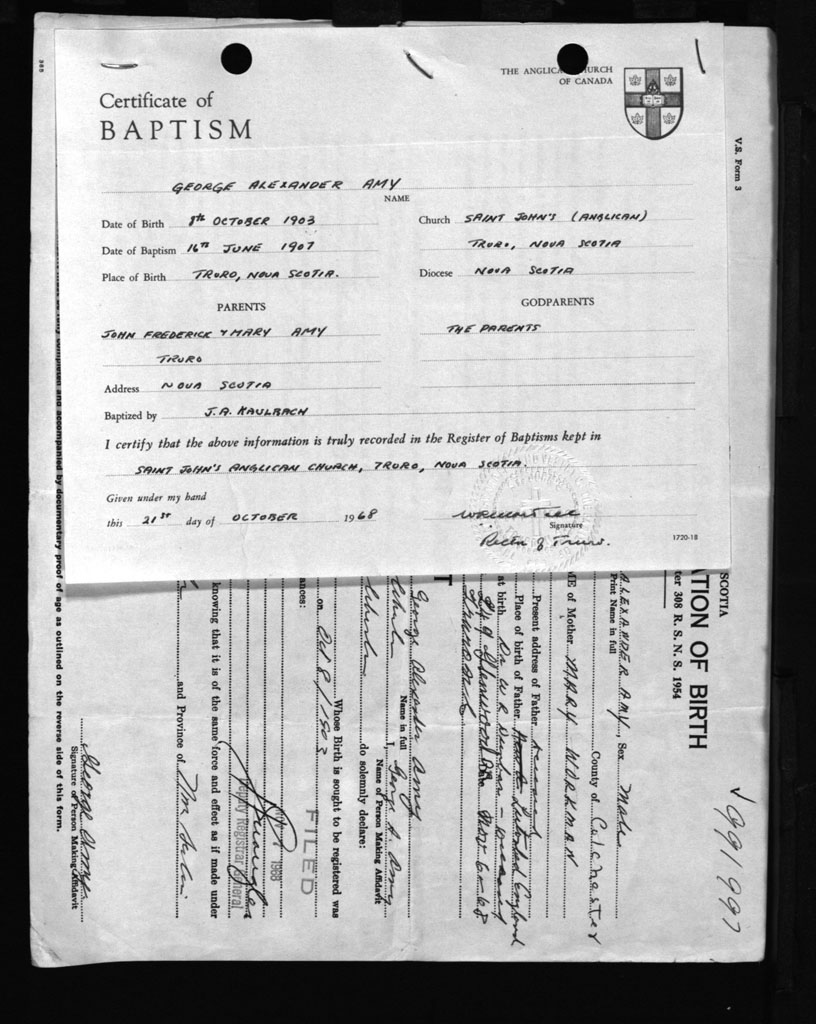 THE ANGLICAN CHURCH
OF CANADA
Certificate of
BAPTISM
GEORGE ALEXANDER AMY
NAME
Date of Birth 8th OCTOBER 1903
Date of Baptism 16TH JUNE 1907
Place of Birth TRURO, NOVA SCOTIA.
Church SAINT JOHN'S (ANGLICAN)
TRURO, NOVA SCOTIA
Diocese NOVA SCOTIA
PARENTS
JOHN FREDERICK & MARY AMY
TRURO
Address NOVA SCOTIA
GODPARENTS
THE PARENTS
Baptized by J.A. KAULBACH
I certify that the above information is truly recorded in the Register of Baptisms kept in
SAINT JOHN'S ANGLICAN CHURCH, TRURO, NOVA SCOTIA.
Given under my hand
this 21ST day of OCTOBER 1968
Signature
Rector of Truro.
1720-18
V.S. Form 3
991997
SCOTIA
ATION OF BIRTH
ter 308 R. S. N. S. 1954
ALEXANDER AMY, Sex Male
Print Name in full
County of Colchester
ME of Mother MARY WORKMAN
Present address of Father deceased
Place of birth of Father England
at birth Dr W R
Nov 6-68
George Alexander Amy
Name in full
I, George A. Amy
Name of Person Making Affidavit
do solemnly declare:
Whose Birth is sought to be registered was
on Oct 8/1903
ances:
FILED
1968
Deputy Registrar General
knowing that it is of the same force and effect as if made under
and Province of
George Amy
Signature of Person Making Affidavit
must be fully completed and accompanied by documentary proof of age as outlined on the reverse side of this form.